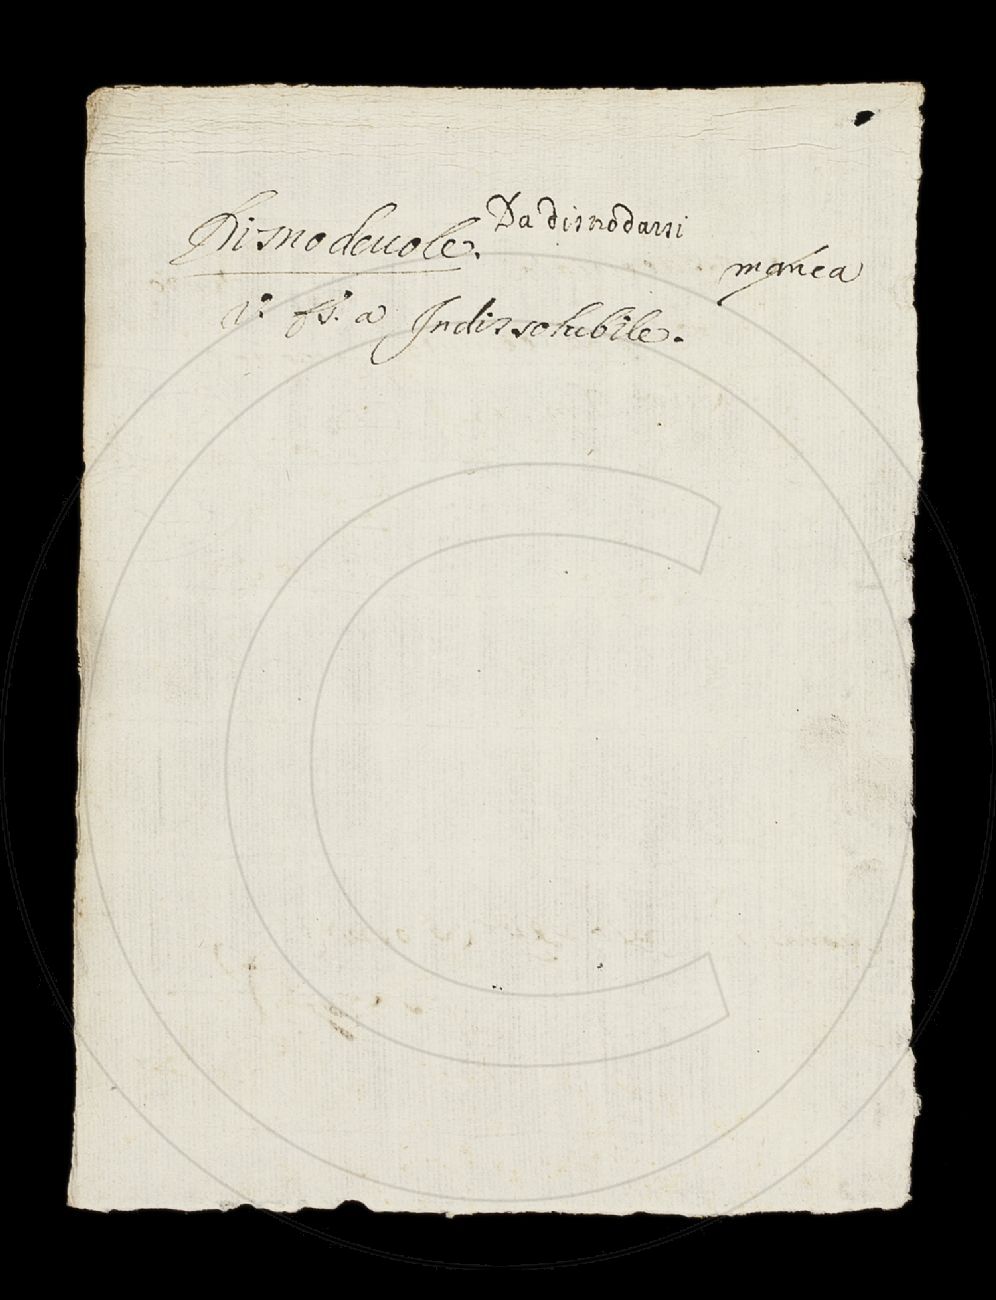 Dismodeuole. Da dismodarsi
manca
v.° fs. a Indissolubile.